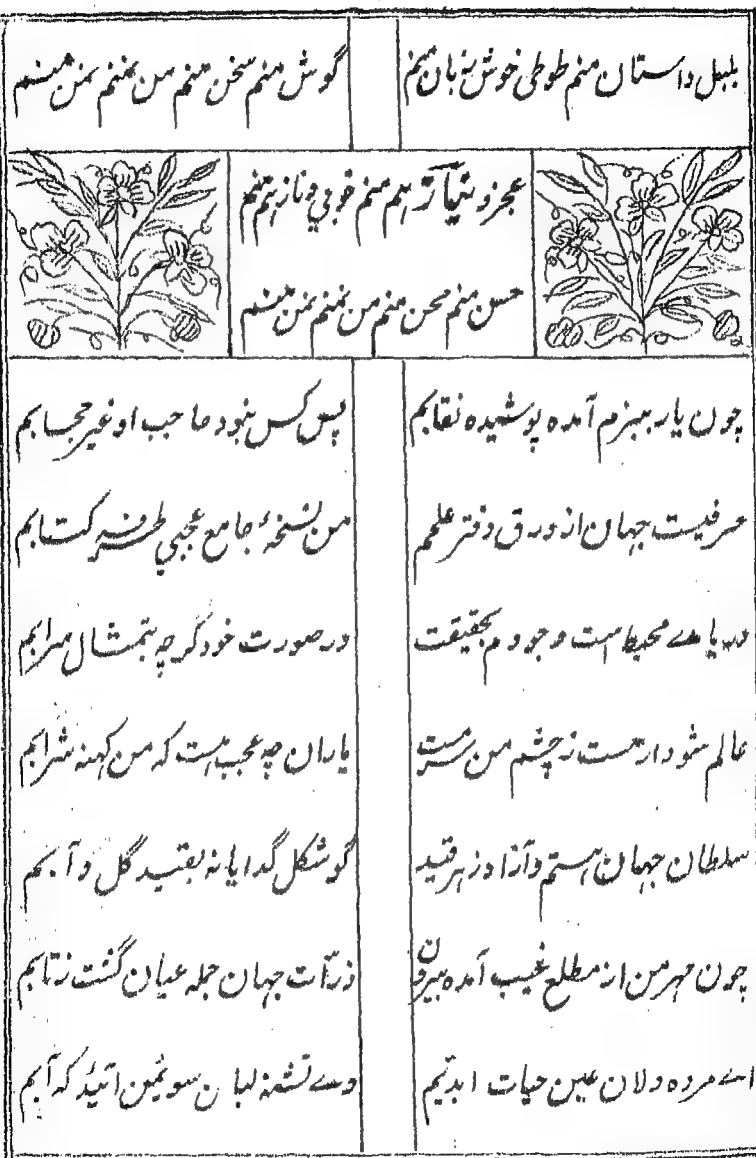 بلبل داستان منم طوطی خوش زبان منم
گوش منم سخن منم من نمنم نمن منم
عجز و نیاز هم منم خوبی و ناز هم منم
حسن منم محن منم من نمنم نمن منم
چون یار ببزم آمده پوشیده نقابم
پس کس نبود حاجب او غیر حجابم
حرفیست جهان از ورق دفتر علمم
من نسخهٔ جامع عجبی طرفه کتابم
دریاے محیط است وجودم بحقیقت
در صورت خود گرچه بتمثال سرابم
عالم شود ار مست ز چشم من سرمست
یاران چه عجب هست که من کهنه شرابم
سلطان جهان هستم و آزاد ز هر قید
گو شکل گدایانه بقید گل و آبم
چون مهر من از مطلع غیب آمده بیرون
ذرّات جهان جمله عیان گشت ز تابم
اے مرده دلان عین حیات ابدیم
وے تشنه لبان سوئمن آئید که آبم